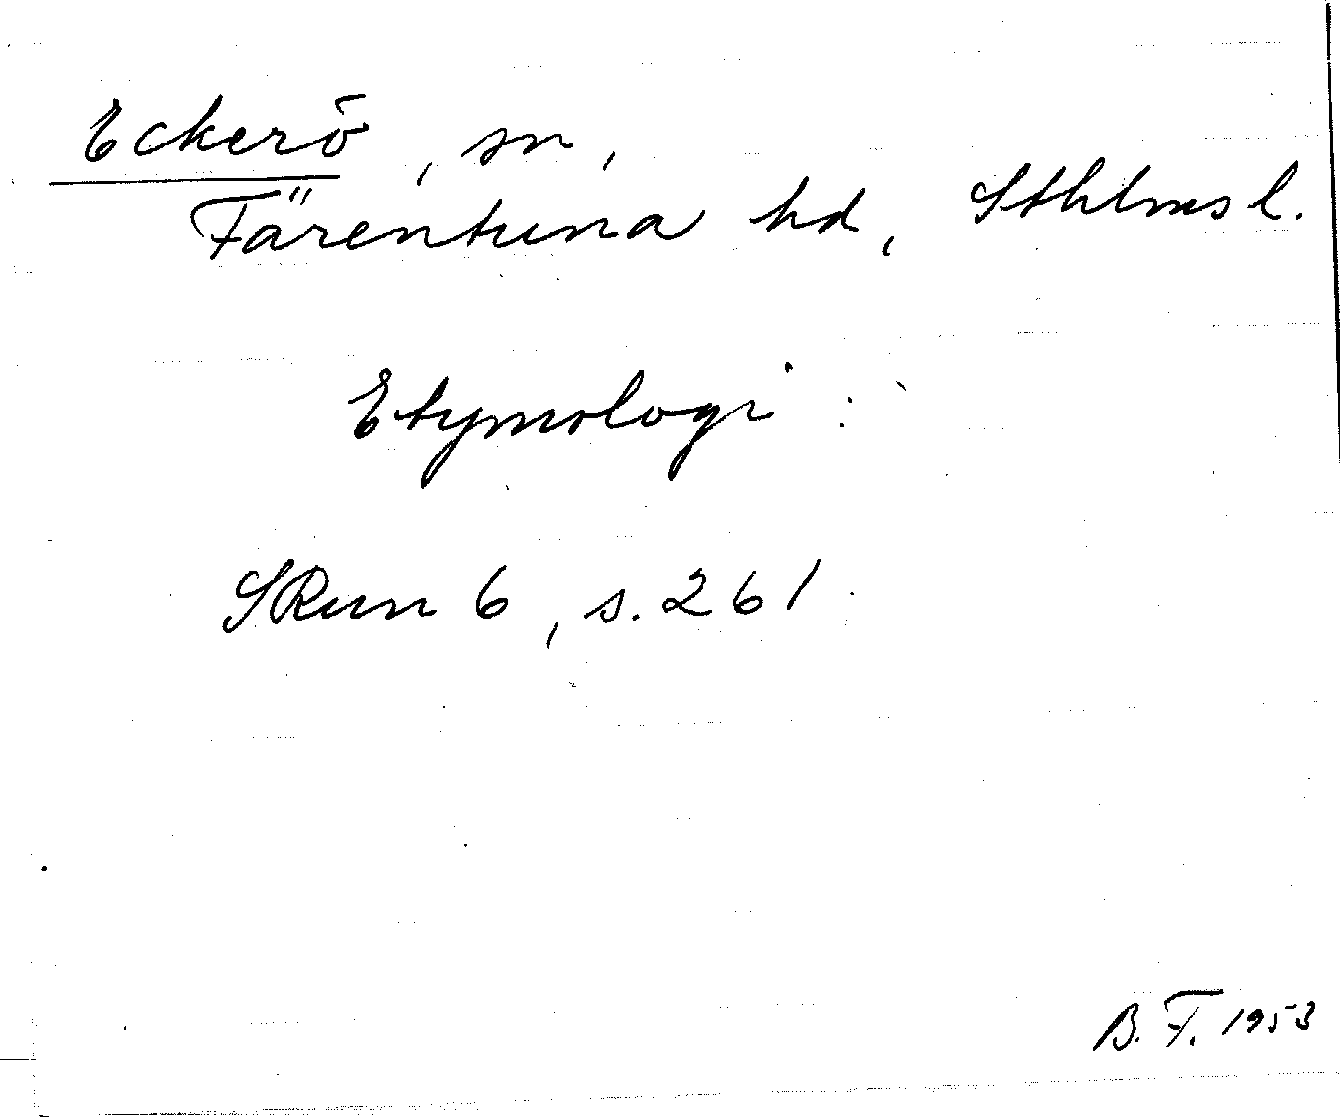 Eckerö, sn,
Färentuna hd, Sthlms l.
Etymologi:
SRun 6, s. 261
B. F. 1953